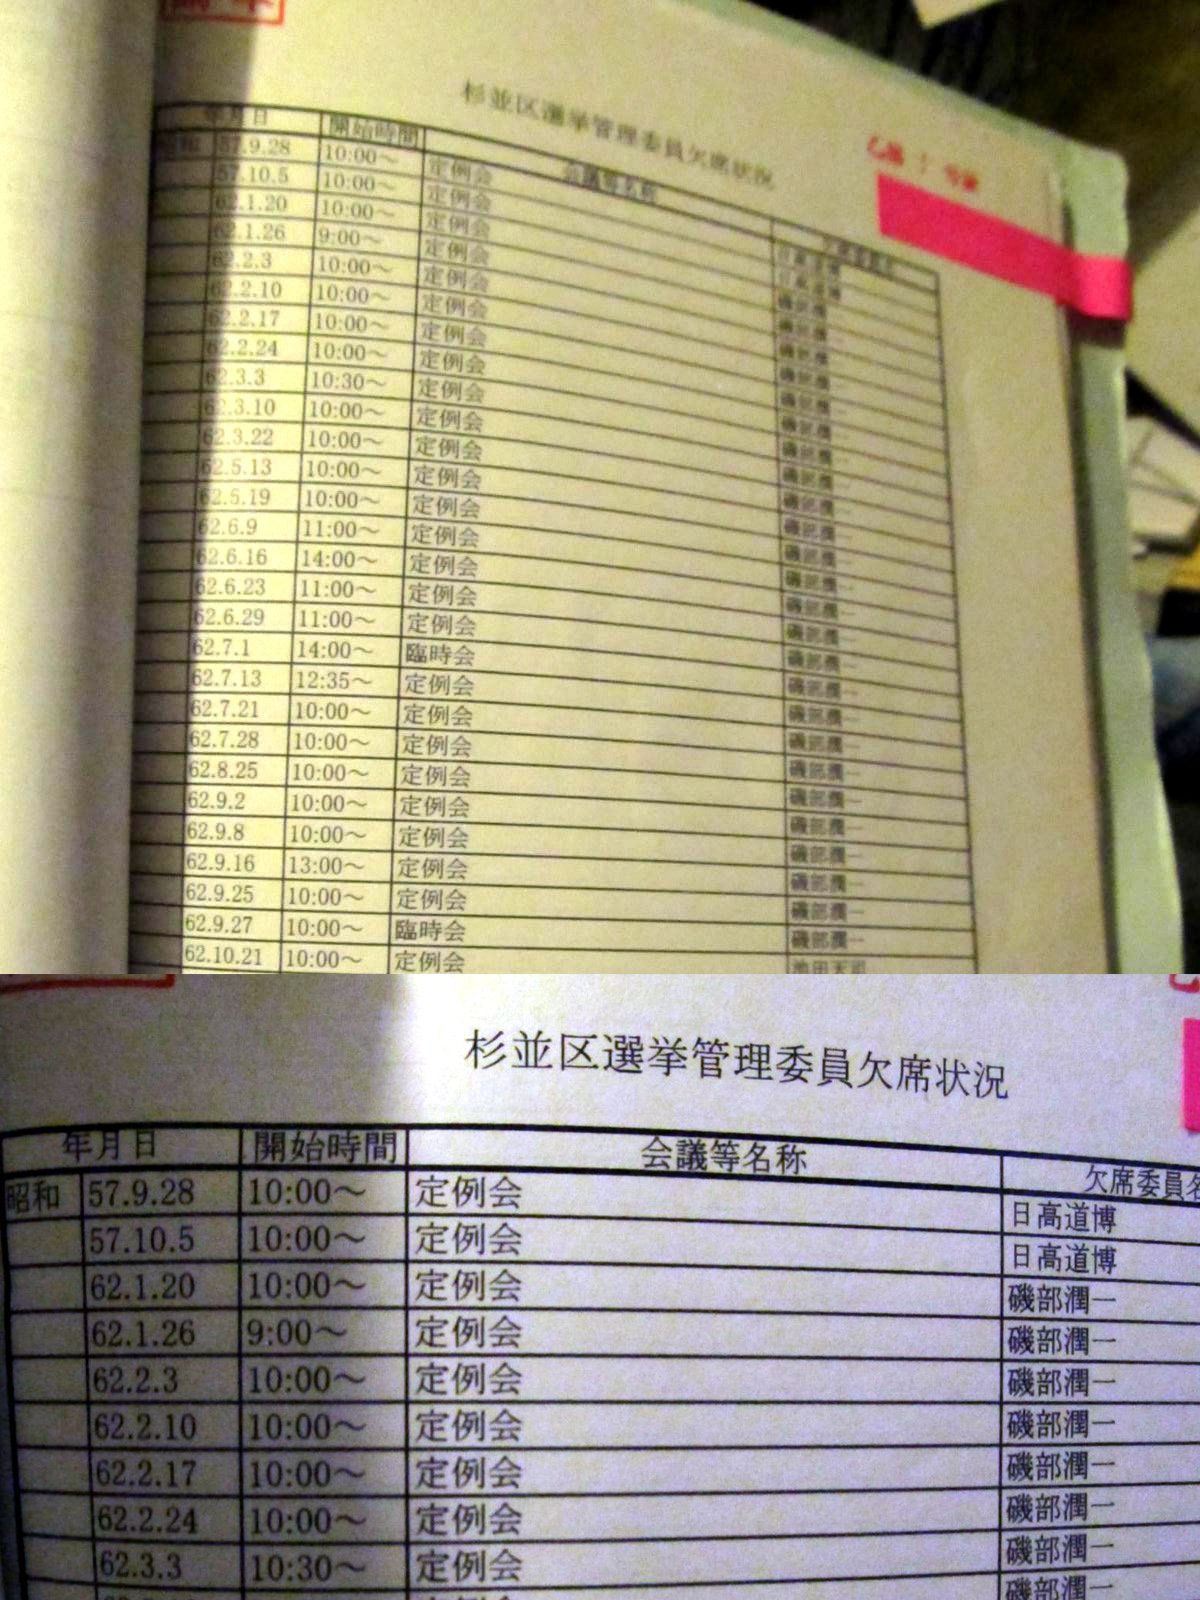 杉並区選挙管理委員欠席状況
年月日 開始時間 会議等名称 欠席委員名
昭和 57.9.28 10:00～ 定例会 日高道博
57.10.5 10:00～ 定例会 日高道博
62.1.20 10:00～ 定例会 磯部潤一
62.1.26 9:00～ 定例会 磯部潤一
62.2.3 10:00～ 定例会 磯部潤一
62.2.10 10:00～ 定例会 磯部潤一
62.2.17 10:00～ 定例会 磯部潤一
62.2.24 10:00～ 定例会 磯部潤一
62.3.3 10:30～ 定例会 磯部潤一
62.3.10 10:00～ 定例会 磯部潤一
62.3.22 10:00～ 定例会 磯部潤一
62.5.13 10:00～ 定例会 磯部潤一
62.5.19 10:00～ 定例会 磯部潤一
62.6.9 11:00～ 定例会 磯部潤一
62.6.16 14:00～ 定例会 磯部潤一
62.6.23 11:00～ 定例会 磯部潤一
62.6.29 11:00～ 定例会 磯部潤一
62.7.1 14:00～ 臨時会 磯部潤一
62.7.13 12:35～ 定例会 磯部潤一
62.7.21 10:00～ 定例会 磯部潤一
62.7.28 10:00～ 定例会 磯部潤一
62.8.25 10:00～ 定例会 磯部潤一
62.9.2 10:00～ 定例会 磯部潤一
62.9.8 10:00～ 定例会 磯部潤一
62.9.16 13:00～ 定例会 磯部潤一
62.9.25 10:00～ 定例会 磯部潤一
62.9.27 10:00～ 臨時会 磯部潤一
62.10.21 10:00～ 定例会
杉並区選挙管理委員欠席状況
年月日 開始時間 会議等名称 欠席委員名
昭和 57.9.28 10:00～ 定例会 日高道博
57.10.5 10:00～ 定例会 日高道博
62.1.20 10:00～ 定例会 磯部潤一
62.1.26 9:00～ 定例会 磯部潤一
62.2.3 10:00～ 定例会 磯部潤一
62.2.10 10:00～ 定例会 磯部潤一
62.2.17 10:00～ 定例会 磯部潤一
62.2.24 10:00～ 定例会 磯部潤一
62.3.3 10:30～ 定例会 磯部潤一
磯部潤一